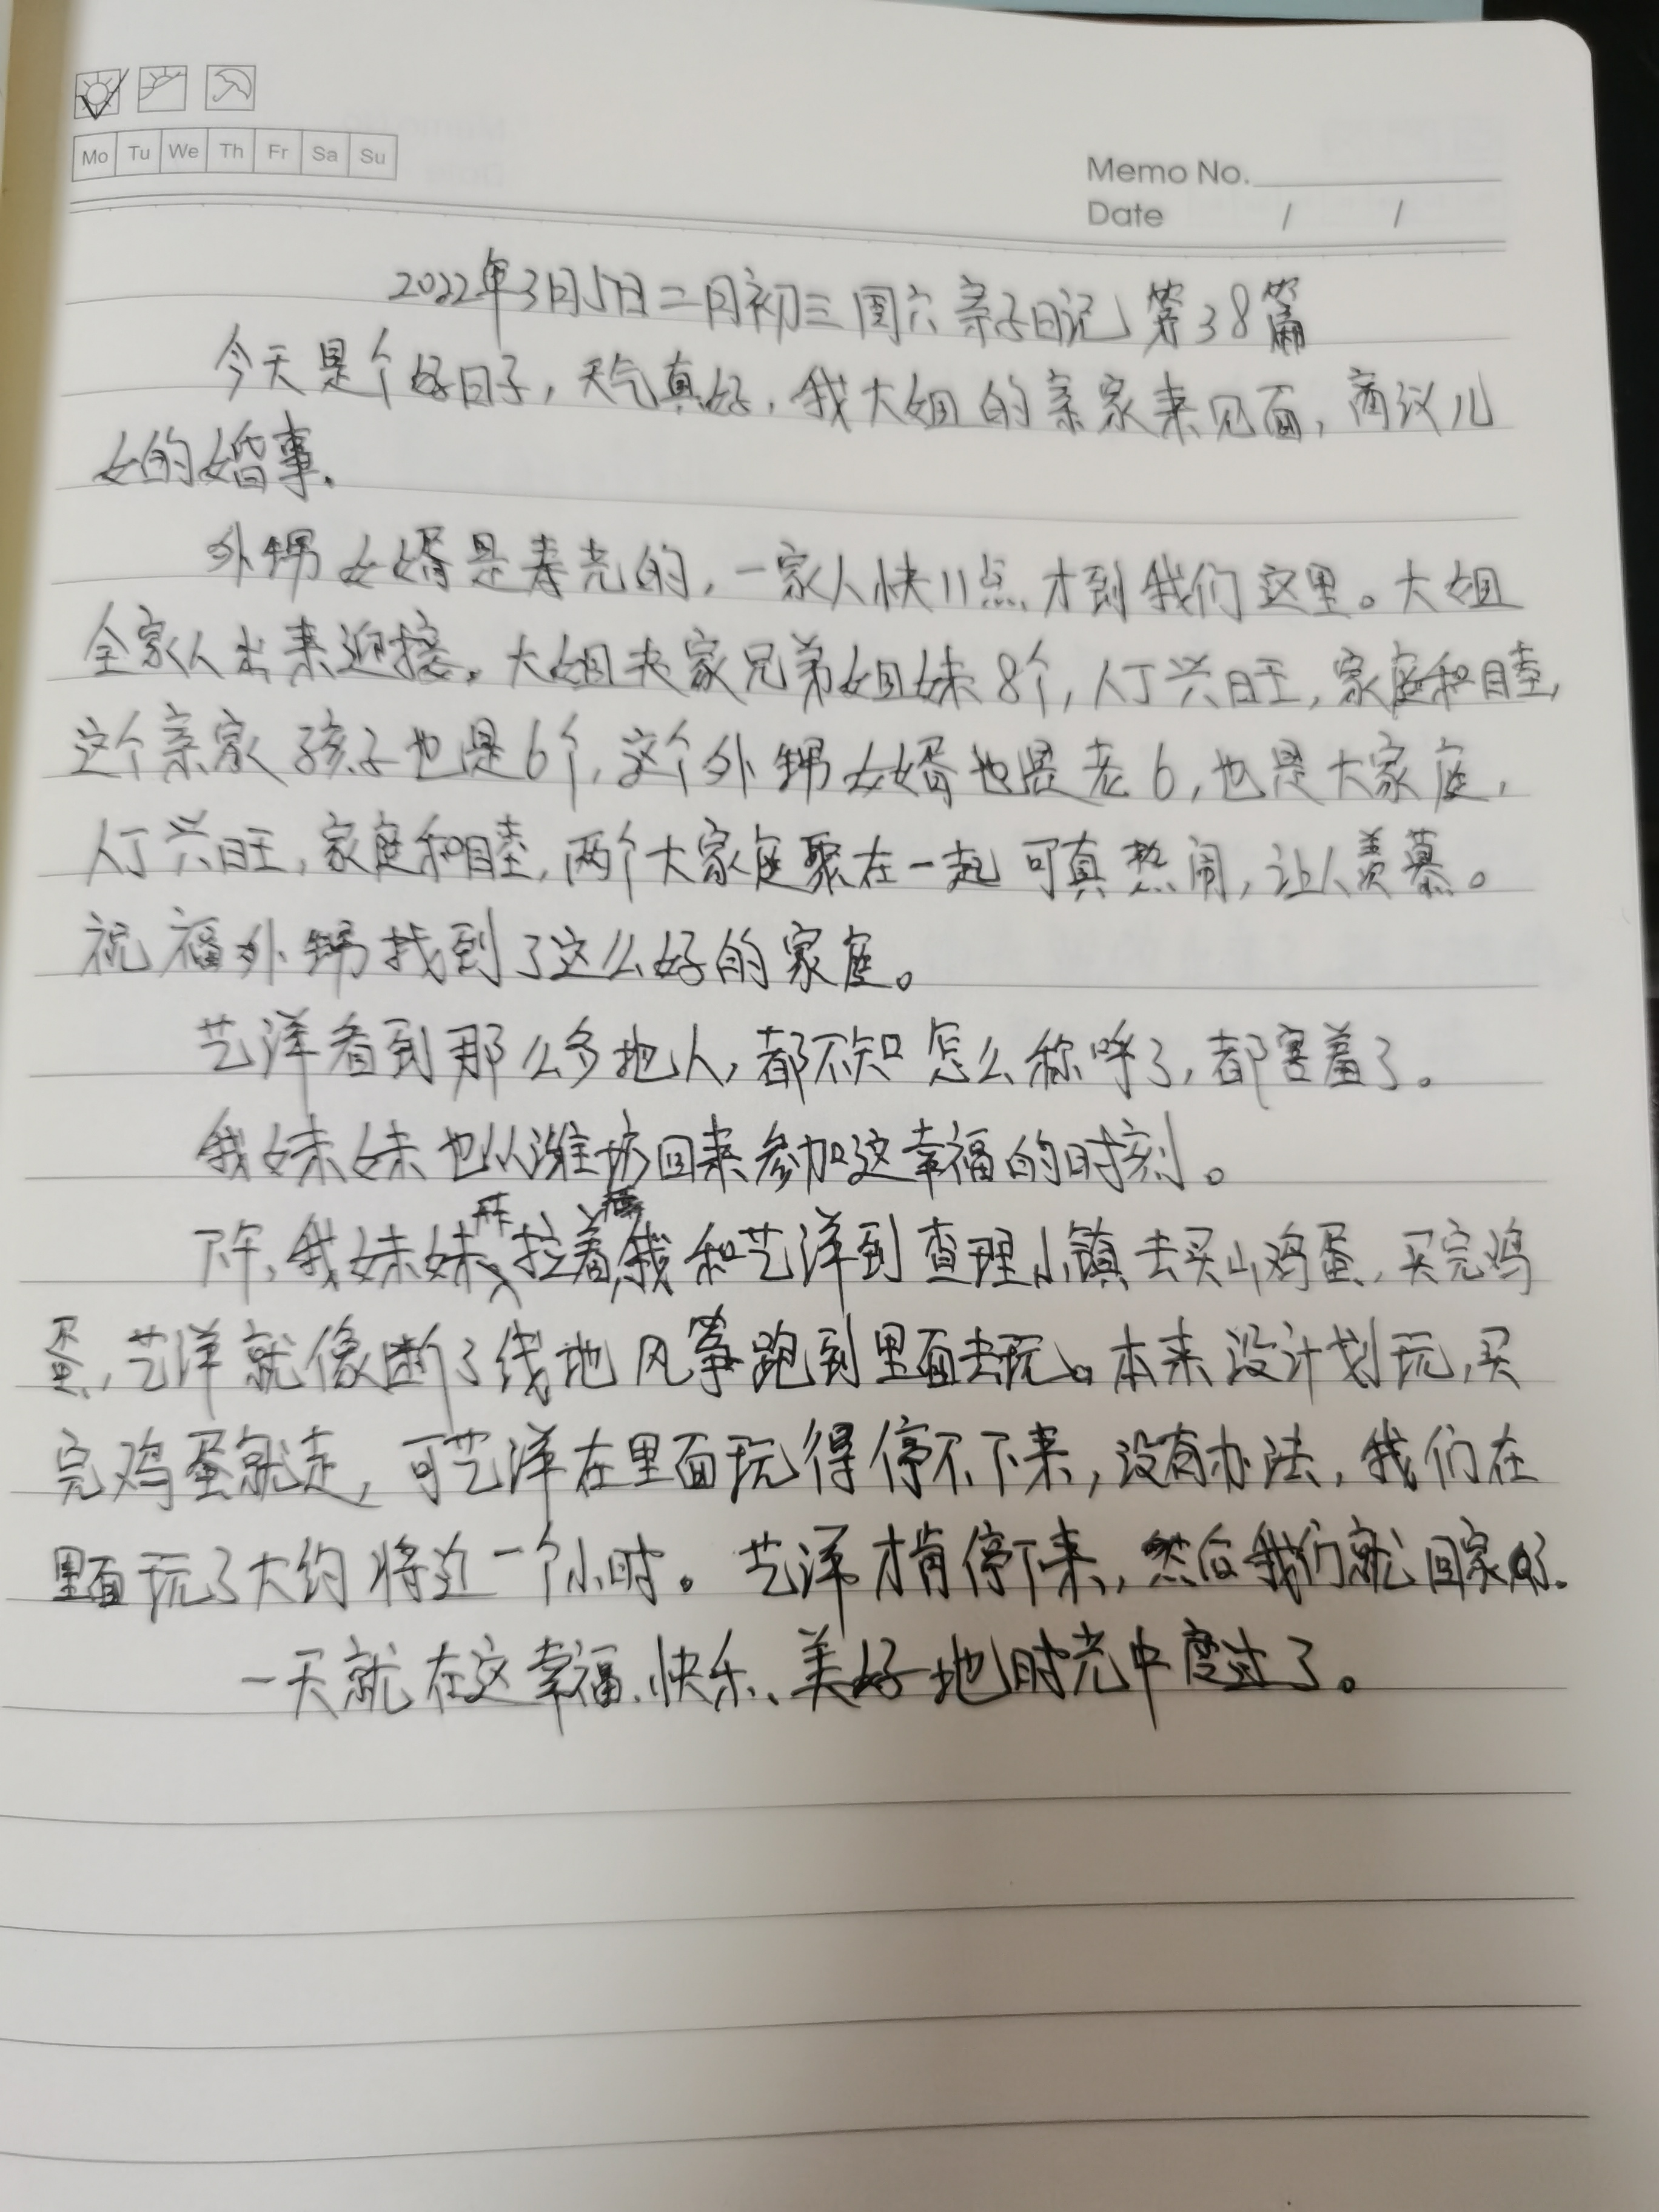 Mo Tu We Th Fr Sa Su
Memo No.
Date / /
2022年3月5日二月初三周六亲子日记 第38篇
今天是个好日子,天气真好,我大姐的亲家来见面,商议儿
女的婚事.
外甥女婿是寿光的,一家人快11点才到我们这里。大姐
全家人出来迎接。大姐夫家兄弟姐妹8个,人丁兴旺,家庭和睦,
这个亲家孩子也是6个,这个外甥女婿也是老6,也是大家庭,
人丁兴旺,家庭和睦,两个大家庭聚在一起可真热闹,让人羡慕。
祝福外甥找到了这么好的家庭。
艺洋看到那么多地人,都不知怎么称呼了,都害羞了。
我妹妹也从潍坊回来参加这幸福的时刻。
下午,我妹妹开拉着我和艺洋到查理小镇去买山鸡蛋,买完鸡
蛋,艺洋就像断了线地风筝跑到里面去玩。本来没计划玩,买
完鸡蛋就走,可艺洋在里面玩得停不下来,没有办法,我们在
里面玩了大约将近一个小时。艺洋才肯停下来,然后我们就回家了.
一天就在这幸福、快乐、美好地时光中度过了。